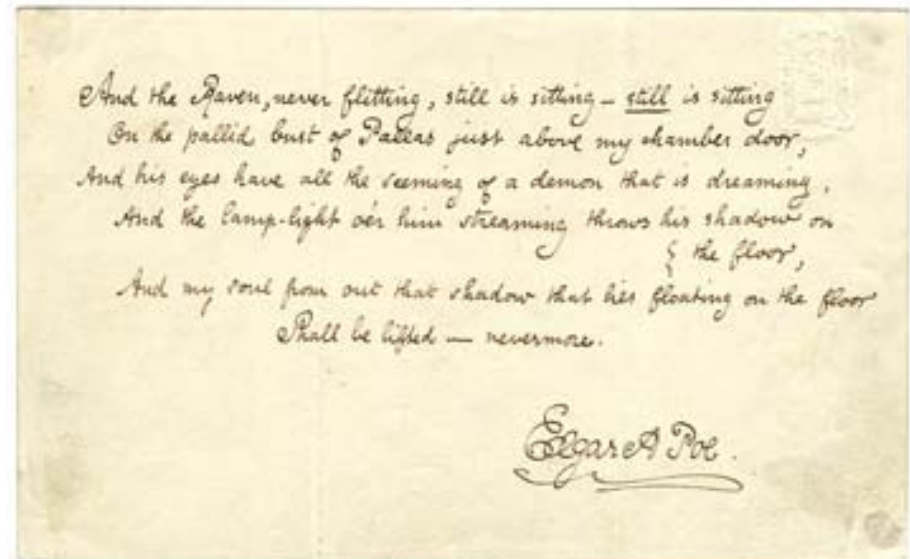 And the Raven, never flitting, still is sitting – still is sitting
On the pallid bust of Pallas just above my chamber door,
And his eyes have all the seeming of a demon that is dreaming,
And the lamp-light o'er him streaming throws his shadow on
{ the floor,
And my soul from out that shadow that lies floating on the floor
Shall be lifted — nevermore.
Edgar A Poe.